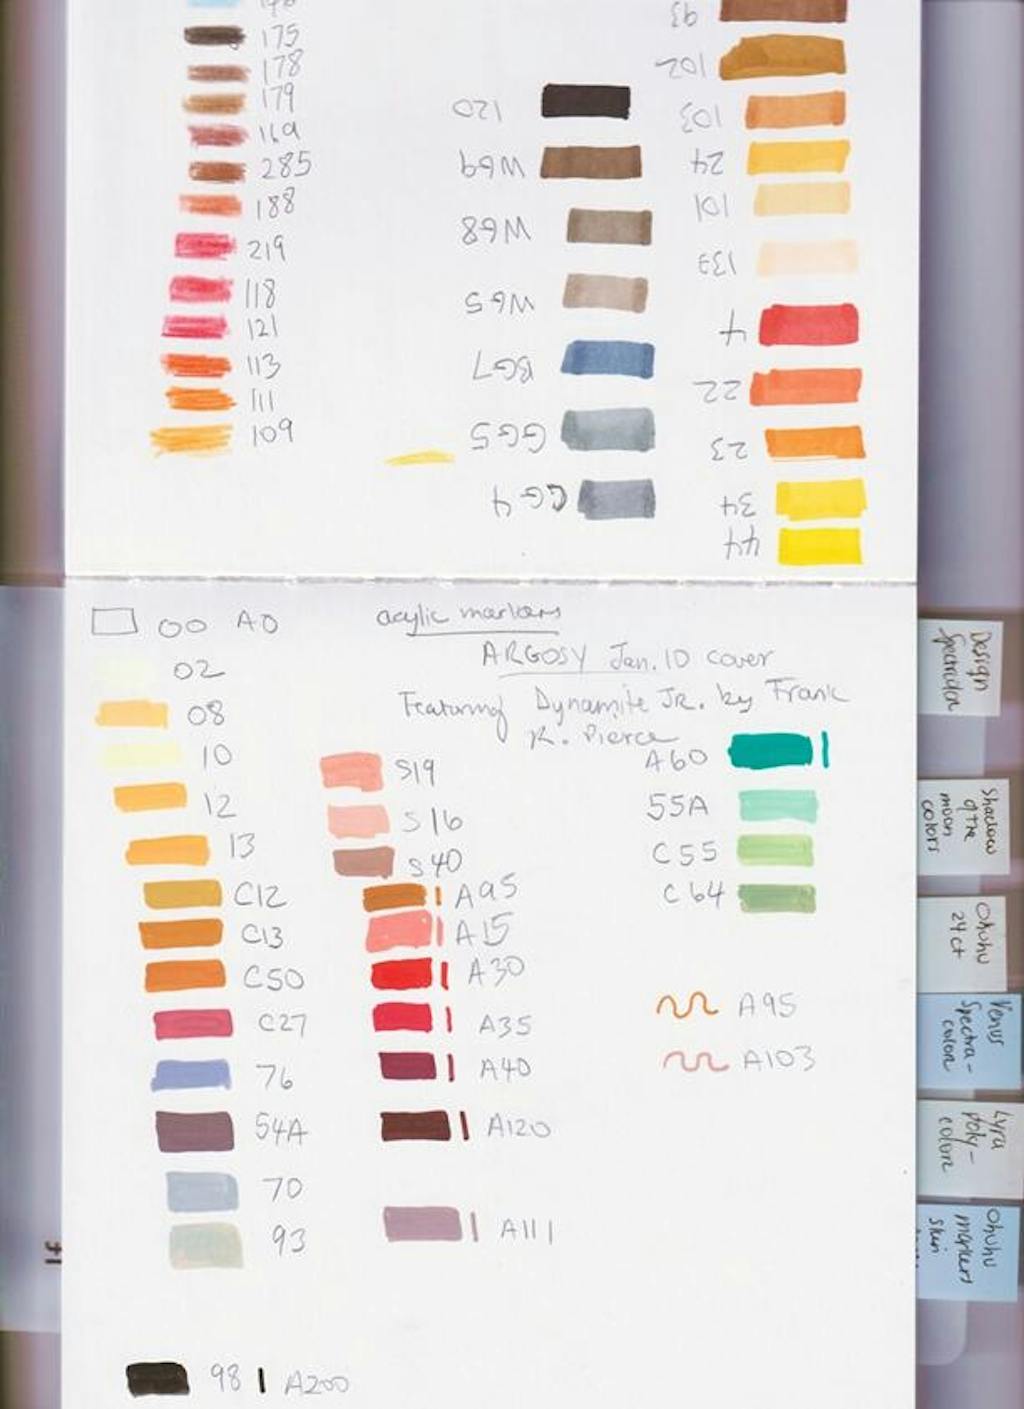 175
178
179
169
285
188
219
118
121
113
111
109
120
WG9
WG8
WG5
BG7
GG5
CG4
93
102
103
24
101
139
4
22
23
34
44
00 A0
acylic markers
ARGOSY Jan. 10 cover
Featuring Dynamite JR. by Frank
R. Pierce
02
08
10
12
13
C12
C13
C50
C27
76
54A
70
93
98 A200
S19
S16
S40
A95
A15
A30
A35
A40
A120
A111
A60
55A
C55
C64
A95
A103
Design
Spectracolor
Shadow
of the
moon
colors
Ohuhu
24 ct
Venus
Spectra-
color
Lyra
poly-
color
Ohuhu
markers
skin